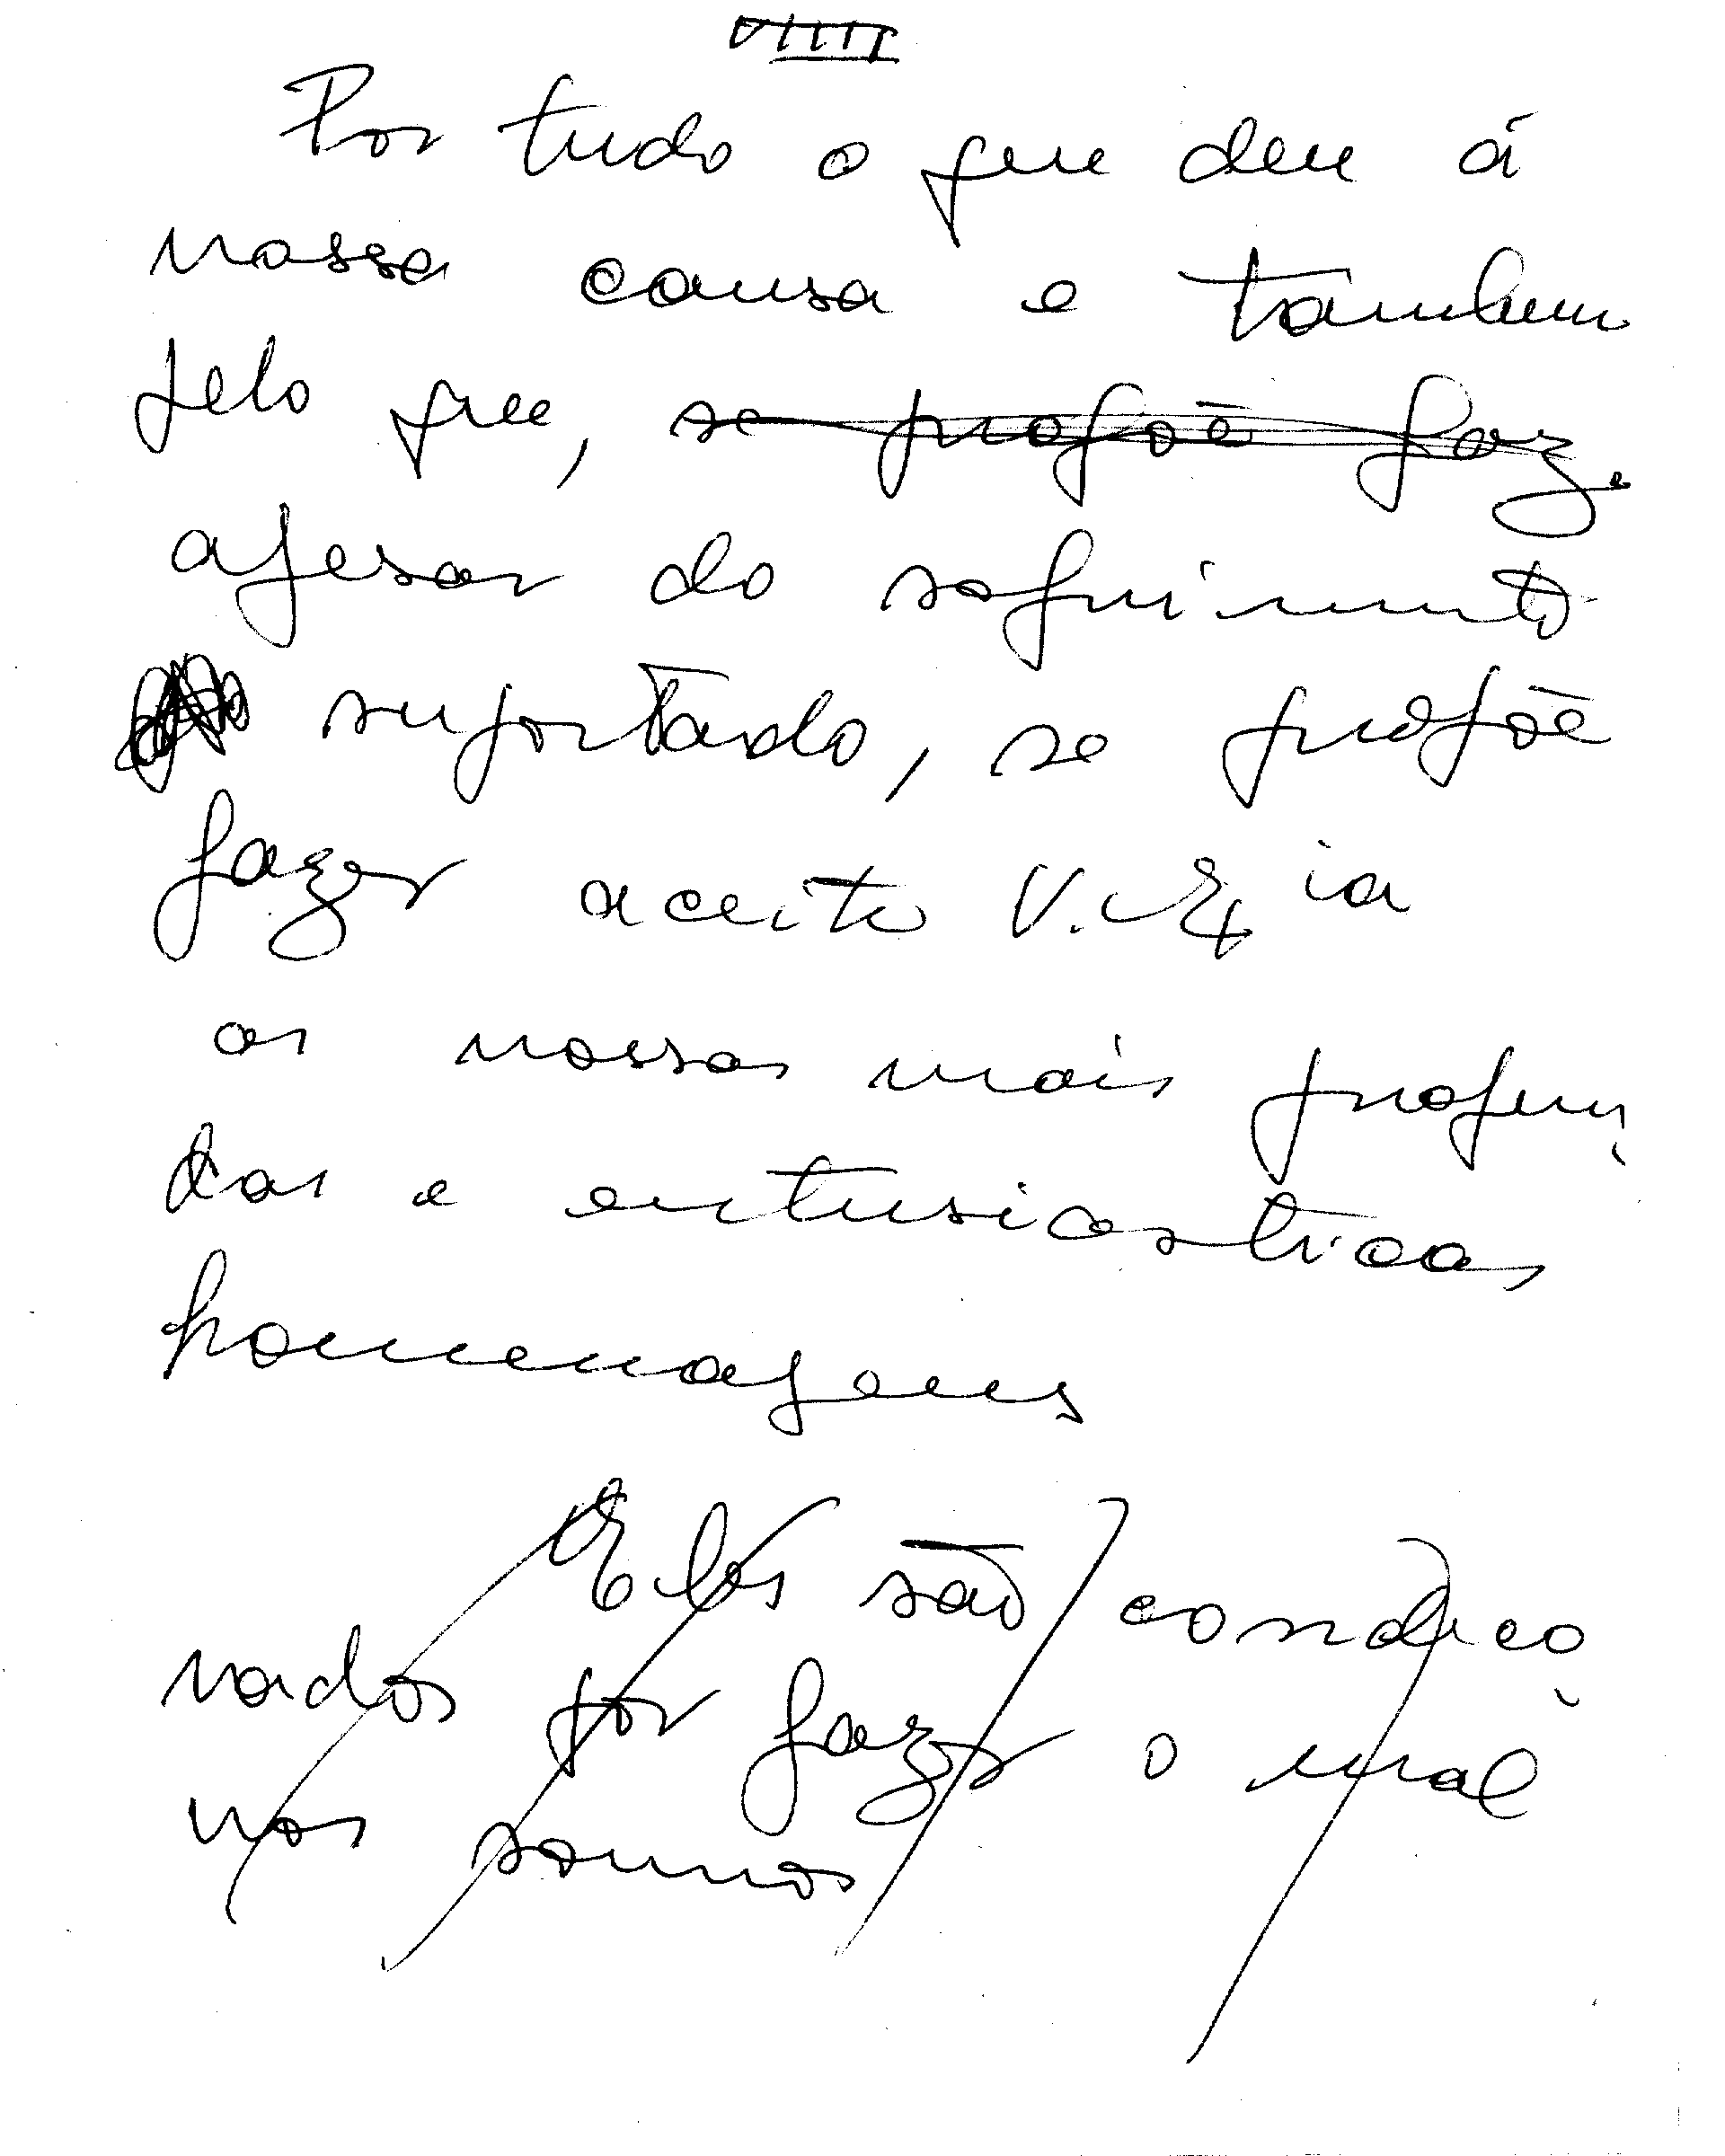 VIIII
Por tudo o que deu á
nossa causa e tambem
pelo que, se propõe faz.
apesar do sofrimento
suportado, se propõe
fazer aceite V. Ex ia
as nossas mais profun
das e entusiasticas
homenagens
Eles são condeco
rados por fazer o mal
nos somos